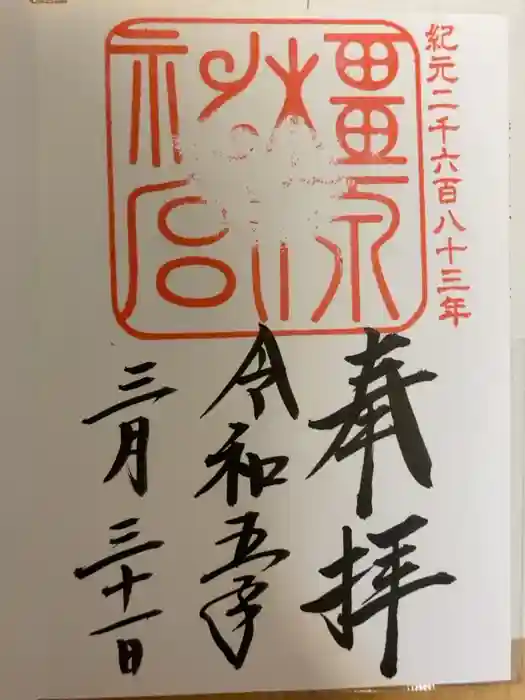 紀元二千六百八十三年
橿原
神宮
奉拝
令和五年
三月三十一日